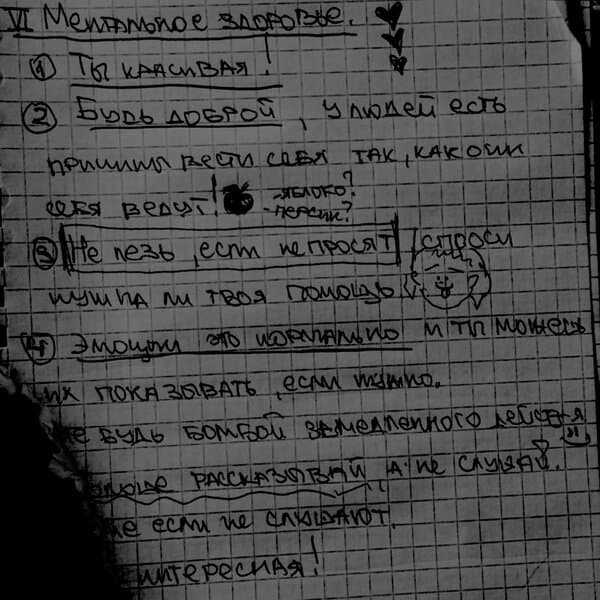 VI Ментальное здоровье.
① Ты красивая!
② Будь доброй, у людей есть
причины вести себя так, как они
себя ведут! -яблоко?
-персик?
③ Не лезь, если не просят, спроси
нужна ли твоя помощь
④ Эмоции это нормально и ты можешь
их показывать, если нужно.
будь бомбой замедленного
рассказывай, а не слушай.
если не слушают.
интересная!